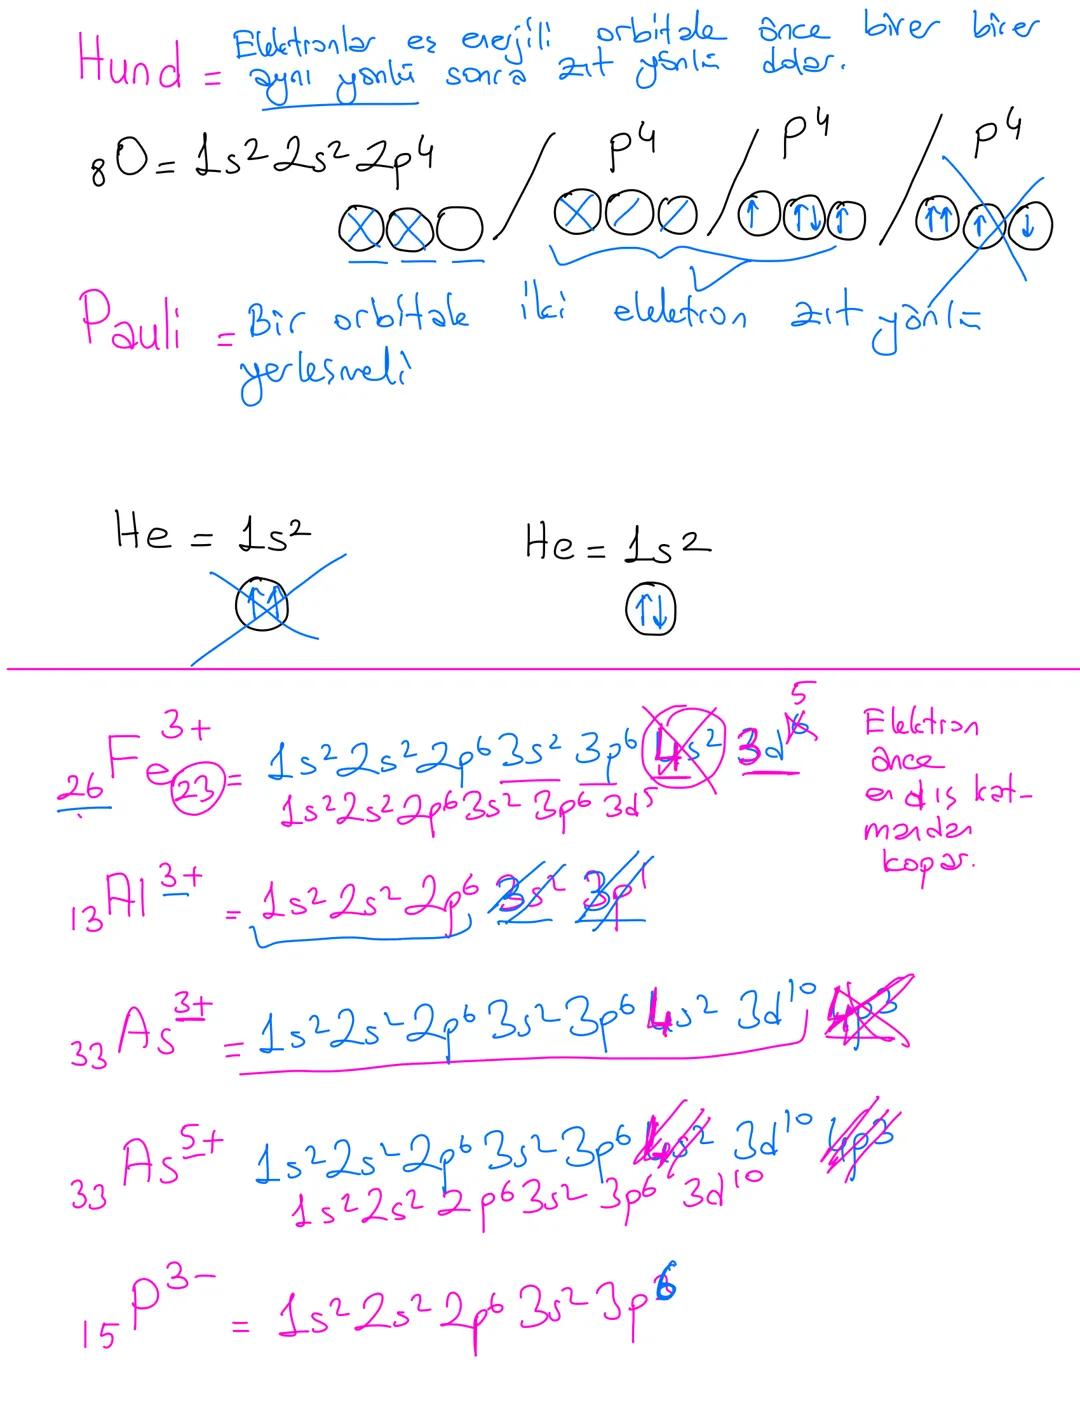 Hund = Elektronlar eş enerjili orbitale önce birer birer
aynı yönlü sonra zıt yönlü dolar.
₈O = 1s² 2s² 2p⁴ / p⁴ / p⁴ / p⁴
↑ ↑↓ ↑ ↑↑ ↑ ↓
Pauli = Bir orbitale iki elektron zıt yönlü
yerleşmeli
He = 1s² He = 1s²
↑↑ ↑↓
₂₆Fe³⁺ 23 = 1s² 2s² 2p⁶ 3s² 3p⁶ 4s² 3d⁶ 5
1s² 2s² 2p⁶ 3s² 3p⁶ 3d⁵
Elektron
önce
en dış kat-
mandan
kopar.
₁₃Al³⁺ = 1s² 2s² 2p⁶ 3s² 3p¹
₃₃As³⁺ = 1s² 2s² 2p⁶ 3s² 3p⁶ 4s² 3d¹⁰ 4p³
₃₃As⁵⁺ 1s² 2s² 2p⁶ 3s² 3p⁶ 4s² 3d¹⁰ 4p³
1s² 2s² 2p⁶ 3s² 3p⁶ 3d¹⁰
₁₅P³⁻ = 1s² 2s² 2p⁶ 3s² 3p⁶